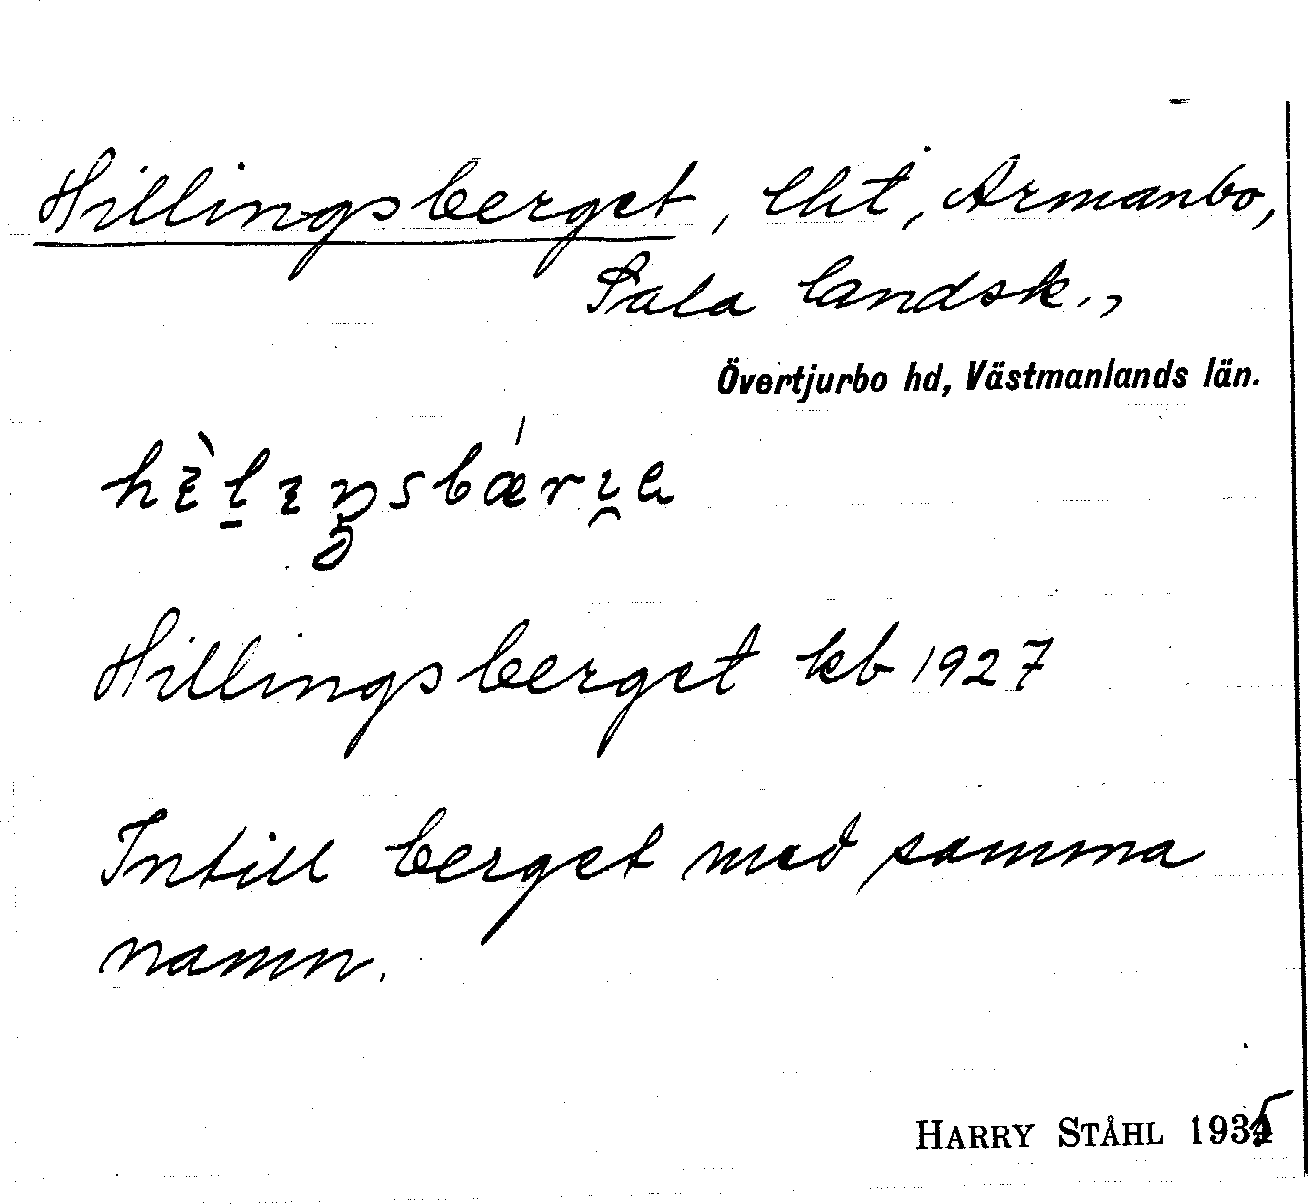 Hillingsberget, lht, Armanbo,
Sala landsk.,
Övertjurbo hd, Västmanlands län.
Hillingsberget kb 1927
Intill berget med samma
namn.
HARRY STÅHL 1935